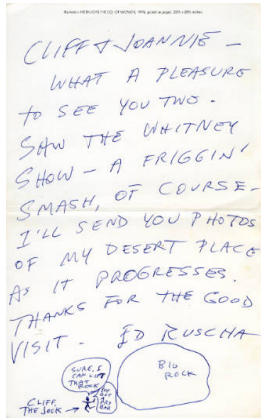 CLIFF & JOANNIE —
WHAT A PLEASURE
to SEE YOU TWO.
SAW THE WHITNEY
SHOW — A FRIGGIN'
SMASH, OF COURSE-
I'LL SEND YOU PHOTOS
OF MY DESERT PLACE
AS IT PROGRESSES.
THANKS FOR THE GOOD
VISIT. ED RUSCHA
SURE, I
CAN LIFT
THAT
ROCK
BIG
ROCK
CLIFF
THE JOCK